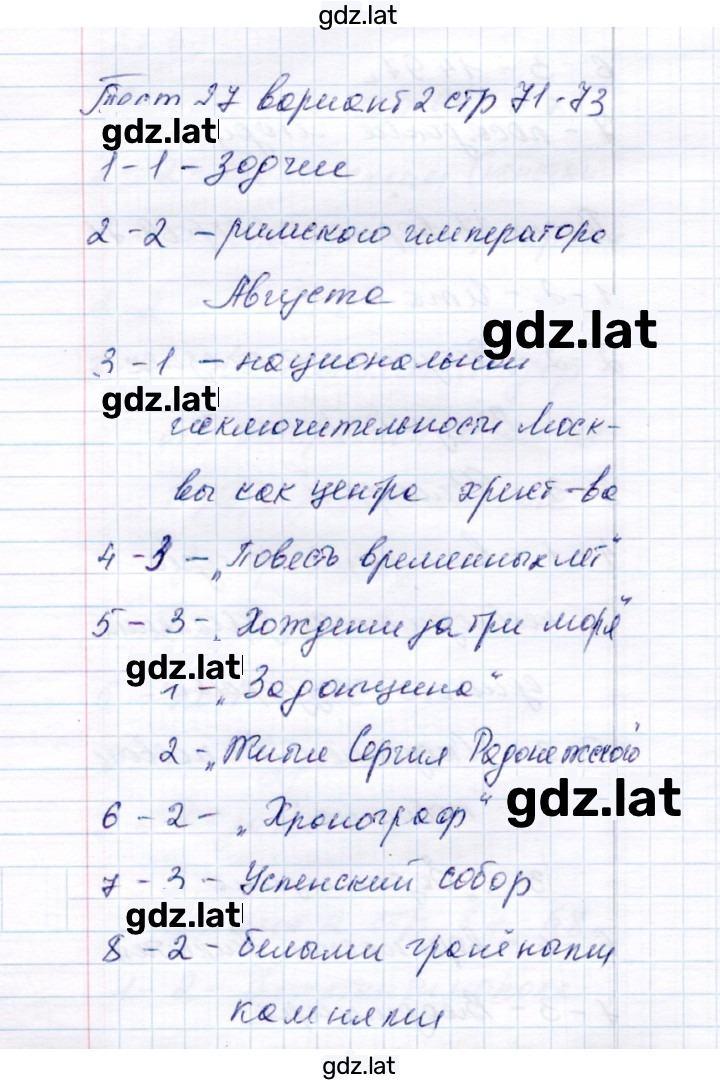 gdz.lat
Тест 27 вариант 2 стр 71-73
gdz.lat
1-1 - Зодчие
2-2 - римского императора
Августа
gdz.lat
3-1 - национальной
gdz.lat
исключительности Моск-
вы как центра христ-ва
4-3 - „Повесть временных лет“
5-3- „Хождение за три моря“
gdz.lat
1 - „Задонщина“
2 - „Житие Сергия Радонежского
6-2- „Хронограф“
gdz.lat
7-3- Успенский собор
gdz.lat
8-2- белыми гранёными
камнями
gdz.lat